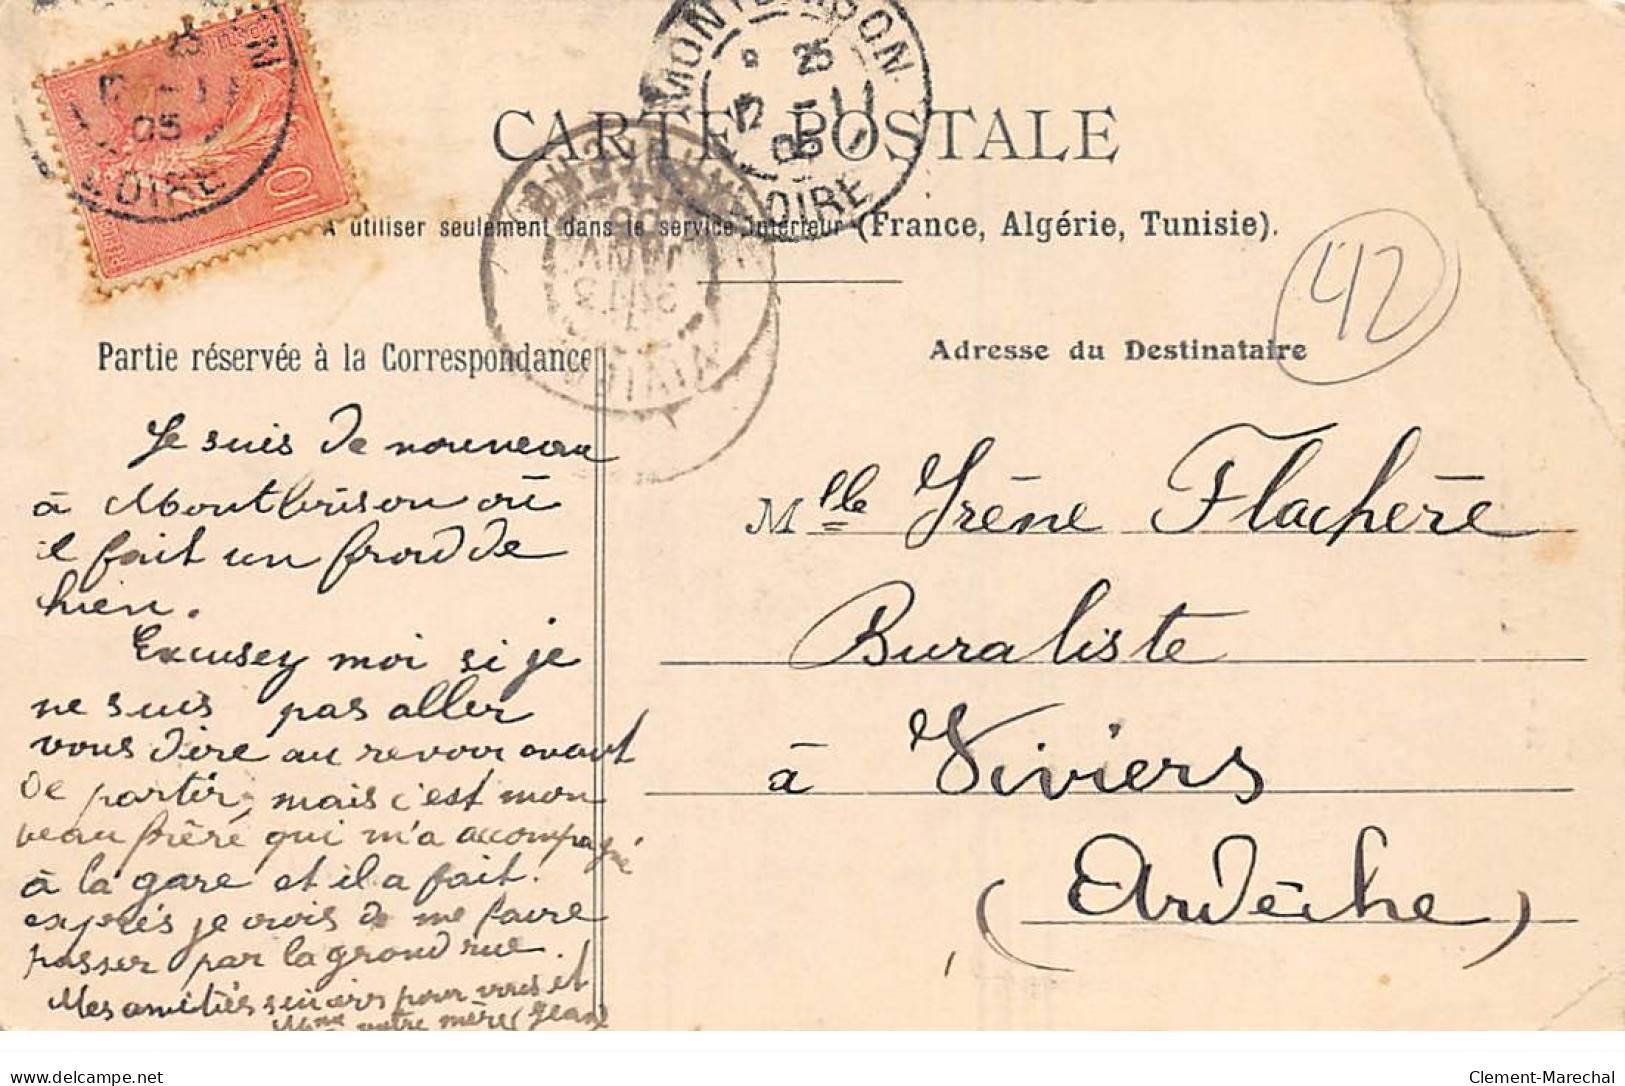 CARTE POSTALE
A utiliser seulement dans le service intérieur (France, Algérie, Tunisie).
MONTBRISON
8 25
12 -1
05
LOIRE
10
05
LOIRE
JANV
05
42
Partie réservée à la Correspondance
Adresse du Destinataire
Je suis de nouveau
à Montbrison où
il fait un froid de
chien.
Excusez moi si je
ne suis pas aller
vous dire au revoir avant
de partir, mais c'est mon
beau frère qui m'a accompagné
à la gare et il a fait
exprès je crois de me faire
passer par la grand rue.
Mes amitiés sincères pour vous et
Mme votre mère (Jean
Mlle Irène Flachère
Buraliste
à Viviers
(Ardèche)
www.delcampe.net
Clement-Marechal